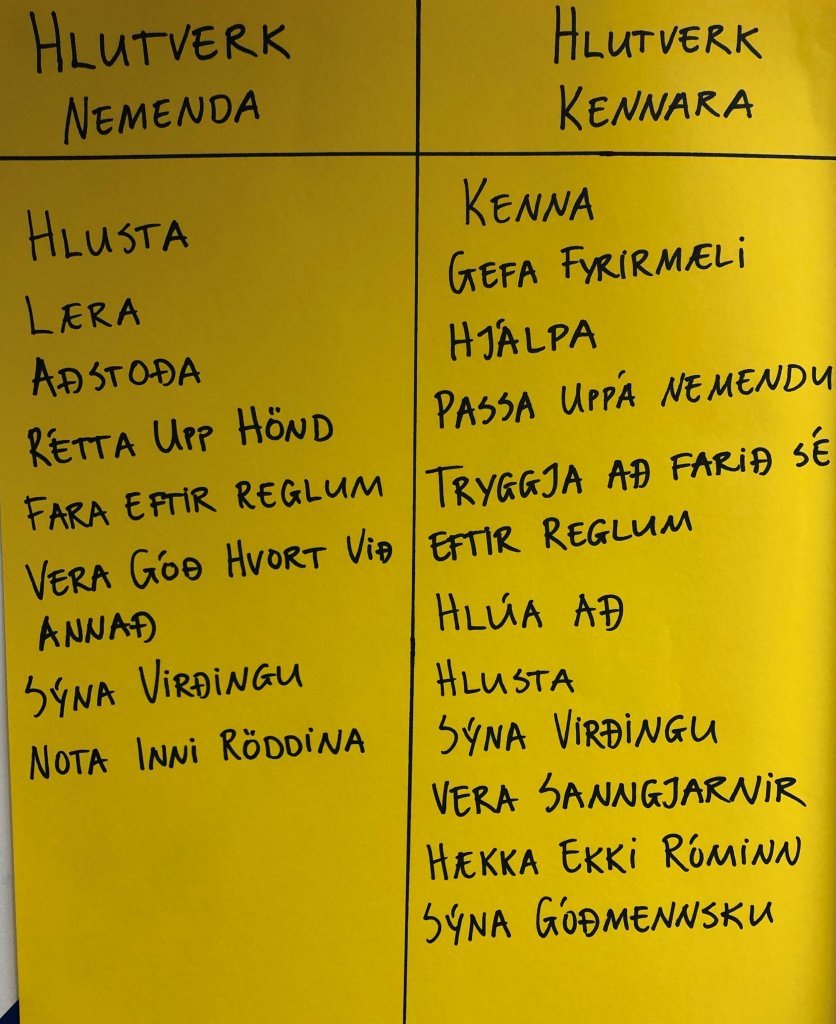 HLUTVERK
NEMENDA
HLUSTA
LÆRA
AÐSTOÐA
RÉTTA UPP HÖND
FARA EFTIR REGLUM
VERA GÓÐ HVORT VIÐ
ANNAÐ
SÝNA VIRÐINGU
NOTA INNI RÖDDINA
HLUTVERK
KENNARA
KENNA
GEFA FYRIRMÆLI
HJÁLPA
PASSA UPPÁ NEMENDU
TRYGGJA AÐ FARIÐ SÉ
EFTIR REGLUM
HLÚA AÐ
HLUSTA
SÝNA VIRÐINGU
VERA SANNGJARNIR
HÆKKA EKKI RÓMINN
SÝNA GÓÐMENNSKU